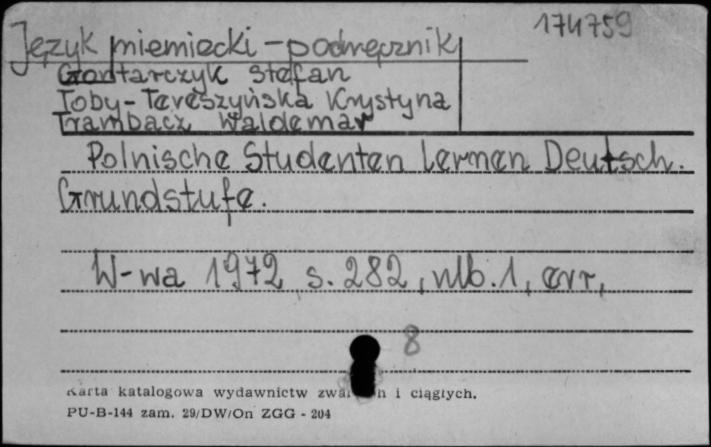 174759
Język niemiecki - podręcznik
Gontarczyk Stefan
Toby-Tereszyńska Krystyna
Trambacz Waldemar
Polnische Studenten lernen Deutsch.
Grundstufe.
W-wa 1972, s. 282, nlb. 1,
8
Karta katalogowa wydawnictw i ciągłych.
PU-B-144 zam. 29/DW/On ZGG - 204